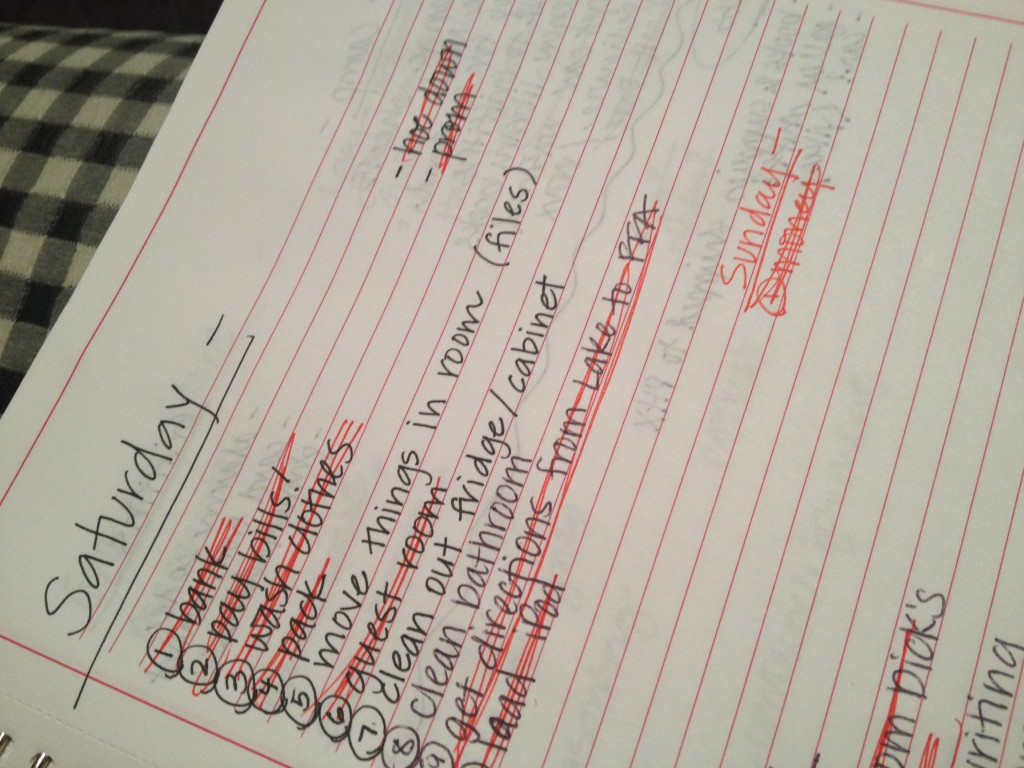 Saturday -
① bank
② pay bills!
③ wash clothes
④ pack
⑤ move things in room (files)
⑥ guest room
⑦ clean out fridge/cabinet
⑧ clean bathroom
⑨ get directions from Lake to FFA
load iPod
- hoe down
- prom
Sunday -
① mommy
om Dick's
riting